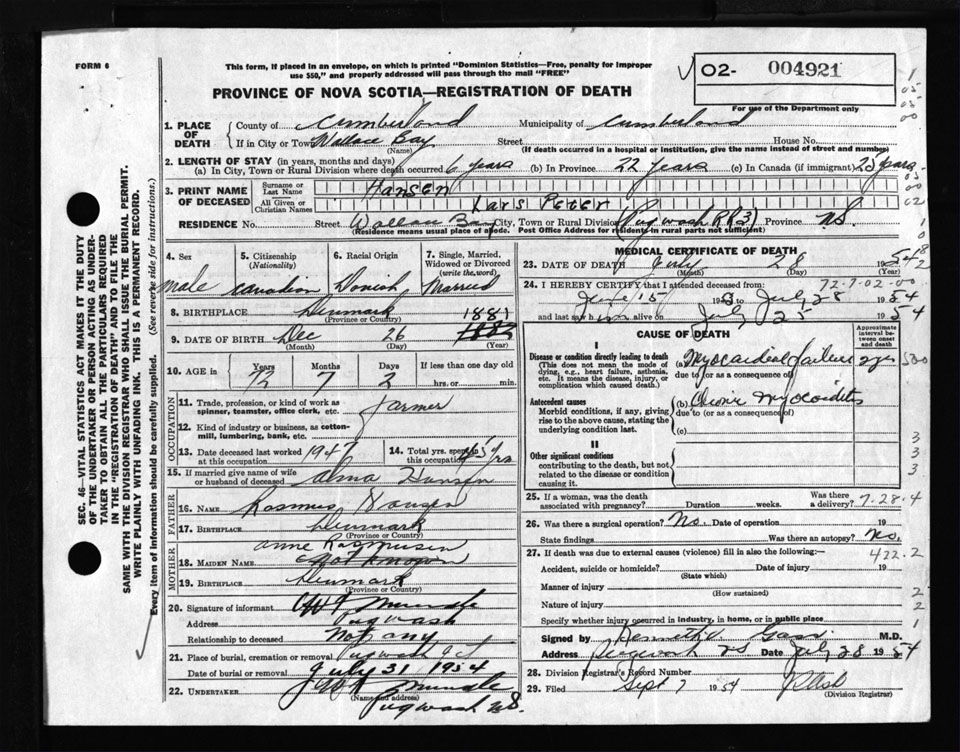 FORM 6
This form, if placed in an envelope, on which is printed "Dominion Statistics—Free, penalty for improper
use $50," and properly addressed will pass through the mail "FREE"
02- 004921
For use of the Department only
PROVINCE OF NOVA SCOTIA—REGISTRATION OF DEATH
1. PLACE OF DEATH
County of Cumberland Municipality of Cumberland
If in City or Town Wallace Bay Street House No.
(Name) (If death occurred in a hospital or institution, give the name instead of street and number)
2. LENGTH OF STAY (in years, months and days)
(a) In City, Town or Rural Division where death occurred 6 years (b) In Province 22 years (c) In Canada (if immigrant) 25 years
3. PRINT NAME OF DECEASED
Surname or Last Name Hansen
All Given or Christian Names Lars Peter
RESIDENCE No. Street Wallace Bay City, Town or Rural Division Pugwash RR3 Province N.S.
(Residence means usual place of abode. Post Office Address for residents in rural parts not sufficient)
4. Sex male
5. Citizenship (Nationality) Canadian
6. Racial Origin Danish
7. Single, Married, Widowed or Divorced (write the word) Married
8. BIRTHPLACE Denmark
(Province or Country)
1881
9. DATE OF BIRTH Dec 26 1882
(Month) (Day) (Year)
10. AGE in Years 72 Months 7 Days 2 If less than one day old
hrs. or min.
OCCUPATION
11. Trade, profession, or kind of work as
spinner, teamster, office clerk, etc. farmer
12. Kind of industry or business, as cotton-
mill, lumbering, bank, etc.
13. Date deceased last worked at this occupation 1947
14. Total yrs. spent in this occupation 45 yrs
15. If married give name of wife
or husband of deceased Alma Hansen
FATHER
16. NAME Rasmus Hansen
17. BIRTHPLACE Denmark
(Province or Country)
MOTHER
Anne Rasmusen
18. MAIDEN NAME Not Known
19. BIRTHPLACE Denmark
(Province or Country)
20. Signature of informant
Address Pugwash
Relationship to deceased Not any
21. Place of burial, cremation or removal Pugwash
Date of burial or removal July 31 1954
22. UNDERTAKER
(Name and address)
Pugwash N.S.
MEDICAL CERTIFICATE OF DEATH
23. DATE OF DEATH July 28 1954
(Month) (Day) (Year)
72-7-02-00
24. I HEREBY CERTIFY that I attended deceased from
June 15 1953 to July 28 1954
and last saw him alive on July 25 1954
CAUSE OF DEATH
Approximate interval between onset and death
I
Disease or condition directly leading to death
(This does not mean the mode of
dying, e.g., heart failure, asthenia,
etc. It means the disease, injury, or
complication which caused death.)
(a) Myocardial failure
due to (or as a consequence of)
Antecedent causes
Morbid conditions, if any, giving
rise to the above cause, stating the
underlying condition last.
(b) Chronic Myocarditis
due to (or as a consequence of)
(c)
II
Other significant conditions
contributing to the death, but not
related to the disease or condition
causing it.
25. If a woman, was the death
associated with pregnancy? Duration weeks. Was there
a delivery?
7-28-4
26. Was there a surgical operation? No. Date of operation 19
State findings Was there an autopsy? No.
27. If death was due to external causes (violence) fill in also the following:—
422.2
Accident, suicide or homicide? Date of injury 19
(State which)
Manner of injury
(How sustained)
Nature of injury
Specify whether injury occurred in industry, in home, or in public place
Signed by M.D.
Address Pugwash N.S. Date July 28 1954
28. Division Registrar's Record Number
29. Filed Sept 7 1954
(Division Registrar)
SEC. 46—VITAL STATISTICS ACT MAKES IT THE DUTY
OF THE UNDERTAKER OR PERSON ACTING AS UNDER-
TAKER TO OBTAIN ALL THE PARTICULARS REQUIRED
IN THE "REGISTRATION OF DEATH" AND TO FILE THE
SAME WITH THE DIVISION REGISTRAR WHO SHALL ISSUE THE BURIAL PERMIT.
WRITE PLAINLY WITH UNFADING INK. THIS IS A PERMANENT RECORD.
Every item of information should be carefully supplied. (See reverse side for instructions.)